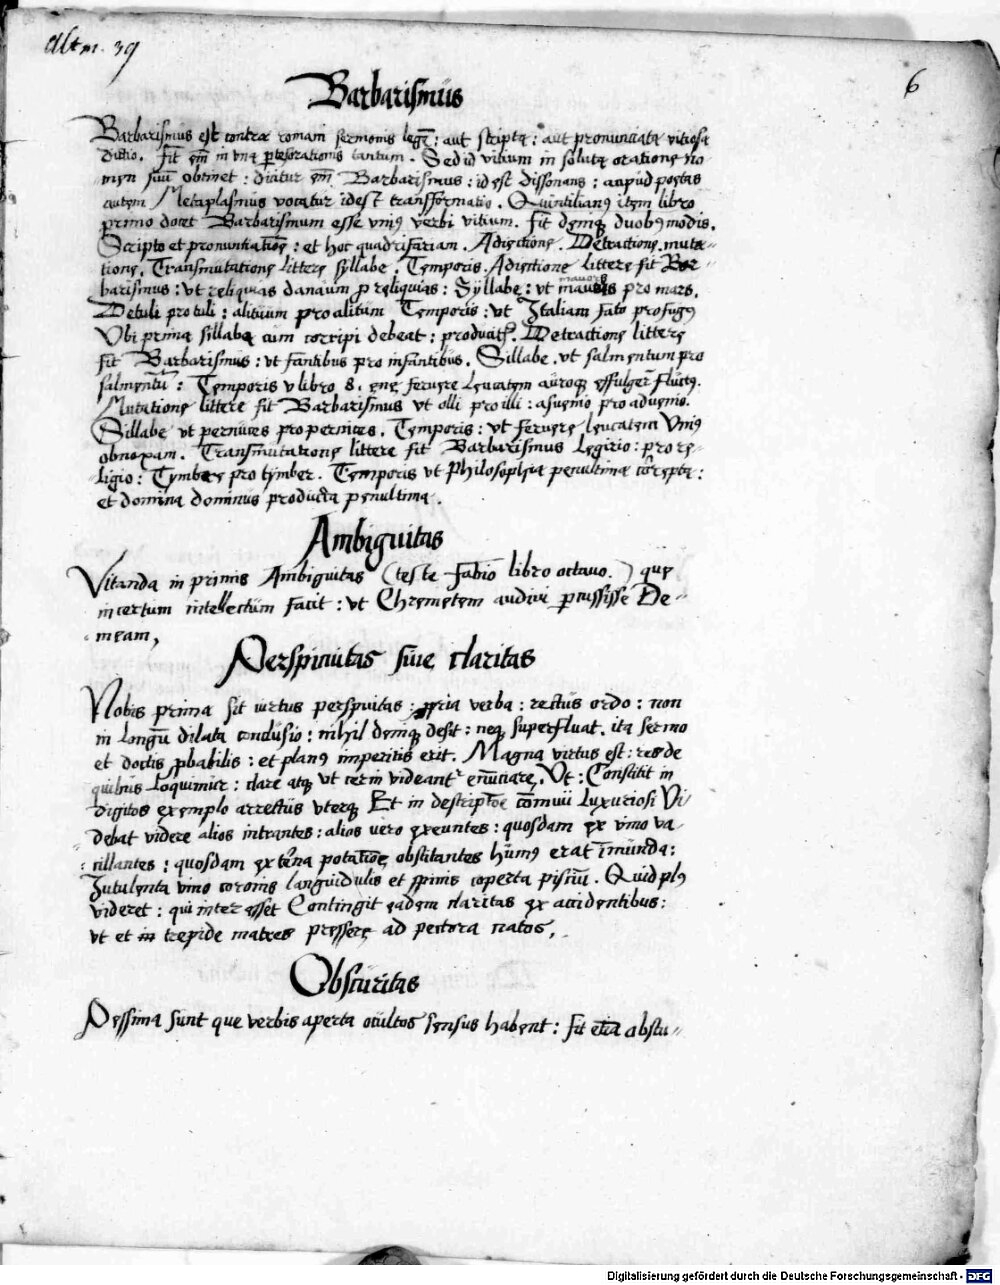 Altm. 39
6
Barbarismus
Barbarismus est contra romani sermonis legē: aut scripta: aut pronunciata vitiosa
dictio. fit em̄ in vna ꝑte orationis tantum. Sed id vitium in soluta oratione no
men suū obtinet: dicitur em̄ Barbarismus: id est dissonans: aupud poetas
autem Metaplasmus vocatur id est transformatio. Quintilianꝰ item libro
primo docet Barbarismum esse vniꝰ verbi vitium. fit deniqꝫ duobꝰ modis.
Scripto et pronuntiatiōe: et hoc quadrifariam. Adiectione. Detractione. muta„
tione. Transmutatione littere syllabe. Temporis. Adiectione littere fit Bar„
barismus: vt reliquias danaum p reliquias: Syllabe: vt mauors pro mars.
Detuli pro tuli: alituum pro alitum Temporis: vt Italiam fato profugꝰ
Vbi prima sillaba cum corripi debeat: producit̄. Detractione littere
fit Barbarismus: vt fantibus pro infantibus. Sillabe. vt salmentum pro
salmentū: Temporis v libro 8. ene. feruere Leucatem auroqꝫ effulgere fluctꝰ.
Mutatione littere fit Barbarismus vt olli pro illi: asuenio pro aduenio.
Sillabe vt pernices pro pernices. Temporis: vt feruere leucatem Vniꝰ
obnoxam. Transmutatione littere fit Barbarismus Legirio: pro re„
„ligio: Tymbre pro tymber. Temporis vt Philosophia penultima correpta:
et domina dominus producta penultima.
Ambiguitas
Vitanda in primis Ambiguitas (teste Fabio libro octauo.) que
incertum intellectum facit: vt Chremetem audiui ꝑcussisse De„
„meam,
Perspicuitas siue claritas
Nobis prima sit virtus perspicuitas: ꝓpria verba: rectus ordo: non
in longū dilata conclusio: nihil deniqꝫ desit: neqꝫ superfluat. ita sermo
et doctis ꝓbabilis: et planꝰ imperitis erit. Magna virtus est: res de
quibus loquimur: clare atqꝫ vt cerni videantʳ enūciare. Vt: Constitit in
digitos exemplo arrectus vterqꝫ Et in descriptōe cōmuii Luxuriosi Vi
debat videre alios intrantes: alios vero exeuntes: quosdam ex vino va„
„cillantes: quosdam ex terna potatiōe obstitantes hūmꝰ erat īmunda:
Lutulenta vino coronis languidulis et spinis coperta pisciū. Quid plꝰ
videret: qui interesset Contingit eadem claritas ex accidentibus:
vt et trepide matres pressere ad pectora natos.
Obscuritas
Pessima sunt que verbis aperta ocultos sensus habent: fit etiā obscu„
Digitalisierung gefördert durch die Deutsche Forschungsgemeinschaft - DFG